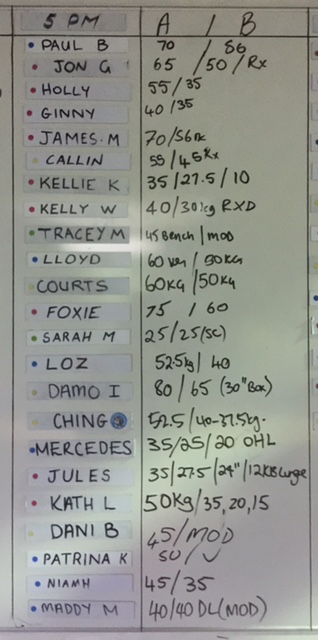 5 PM A / B
PAUL B 70 / 56
JON G 65 / 50 / Rx
HOLLY 55/35
GINNY 40/35
JAMES.M 70/56 Rx
CALLIN 55/45 Rx
KELLIE K 35/27.5/10
KELLY W 40/30kg RXD
TRACEY M 45 Bench / MOD
LLOYD 60 KG / 50KG
COURTS 60KG/50KG
FOXIE 75 / 60
SARAH M 25/25(SC)
LOZ 52.5kg / 40
DAMO I 80 / 65 (30" Box)
CHING 52.5/40-37.5kg.
MERCEDES 35/25/20 OHL
JULES 35/27.5/24"/12KB Lunge
KATH L 50Kg/35,20,15
DANI B 45/MOD
PATRINA K 50 /
NIAMH 45/35
MADDY M 40/40 DL(MOD)